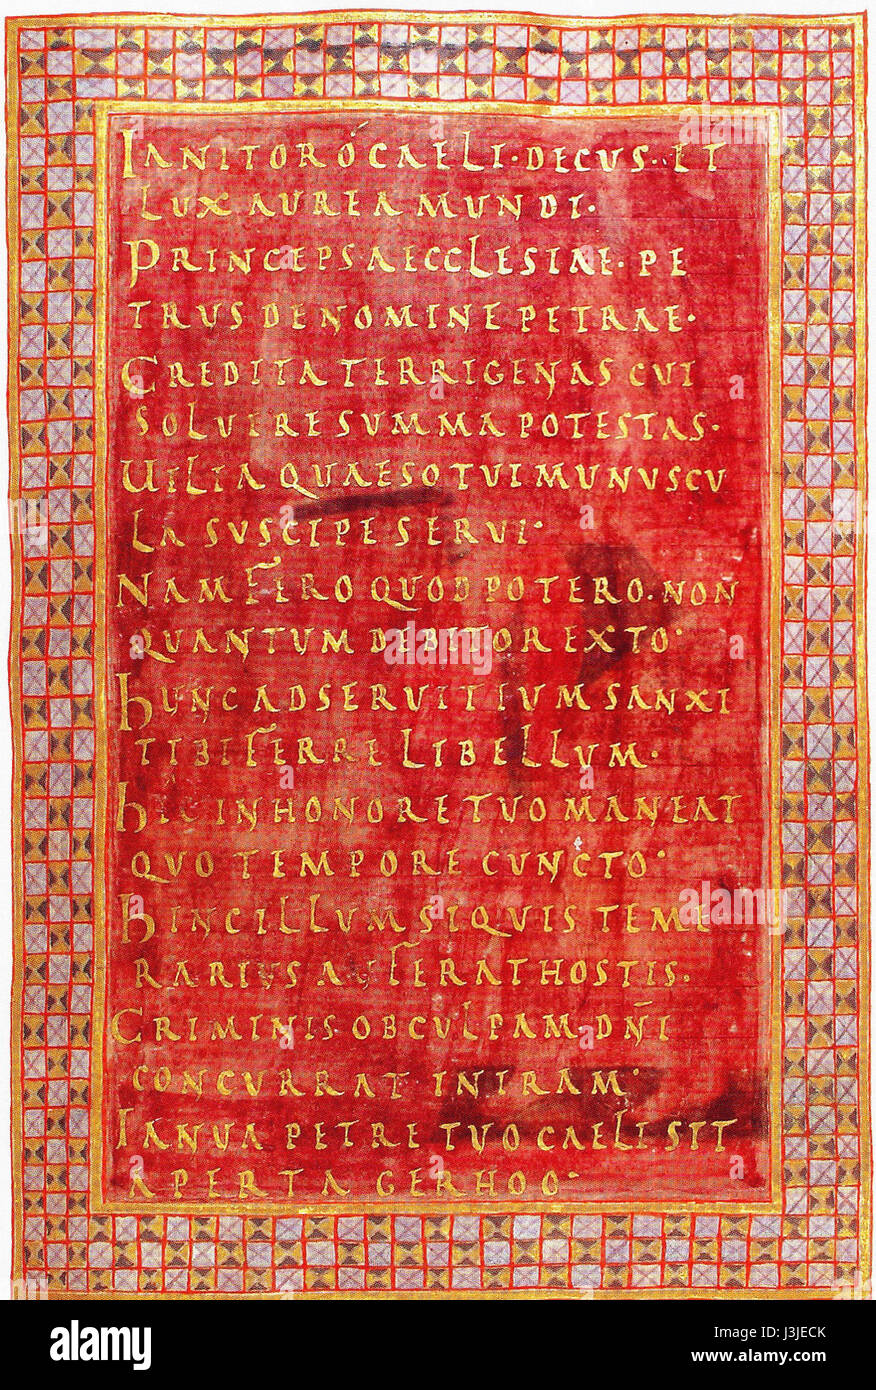 IANITOR Ó CAELI · DECUS · ET
LUX AUREA MUNDI ·
PRINCEPS AECCLESIAE · PE
TRUS DE NOMINE PETRAE ·
CREDITA TERRIGENAS CUI
SOLUERE SUMMA POTESTAS ·
UILIA QUAESO TUI MUNUSCU
LA SUSCIPE SERUI ·
NAM FERO QUOD POTERO · NON
QUANTUM DEBITOR EXTO ·
HUNC AD SERUITIUM SANXI
TIBI FERRE LIBELLUM ·
HIC IN HONORE TUO MANEAT
QUO TEMPORE CUNCTO ·
HINC ILLUM SI QUIS TEME
RARIUS AUFERAT HOSTIS ·
CRIMINIS OB CULPAM DÑI
CONCURRAT IN IRAM ·
IANUA PETRE TUO CAELI SIT
APERTA GERHOO ·
alamy stock photo
J3JECK
www.alamy.com